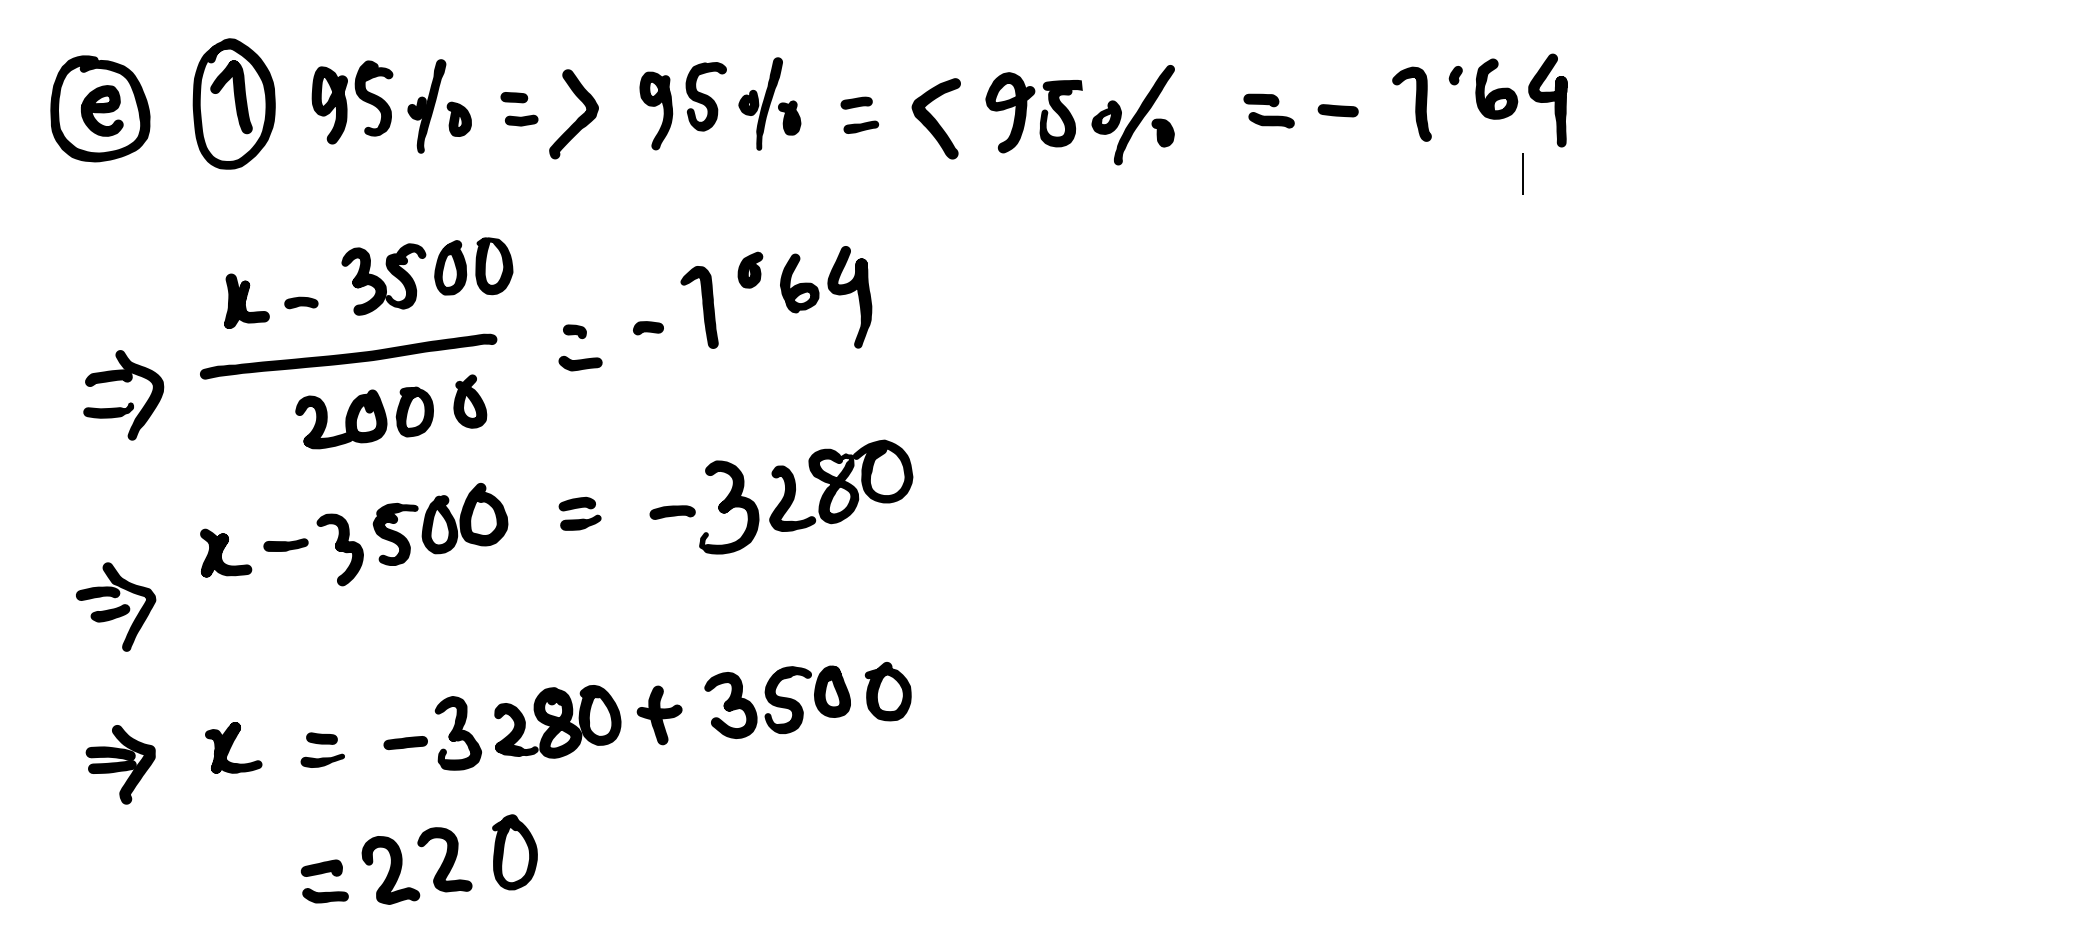 ⓔ ① 95% => 95% = < 95% = - 1.64
⇒ x - 3500 / 2000 = - 1.64
⇒ x - 3500 = - 3280
⇒ x = - 3280 + 3500
= 220